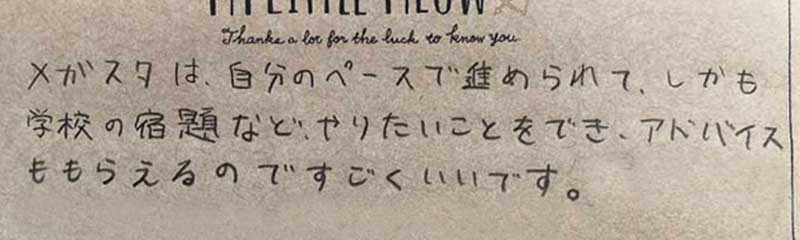 MY LITTLE MEOW
Thanks a lot for the luck to know you.
メガスタは、自分のペースで進められて、しかも
学校の宿題など、やりたいことをでき、アドバイス
ももらえるのですごくいいです。